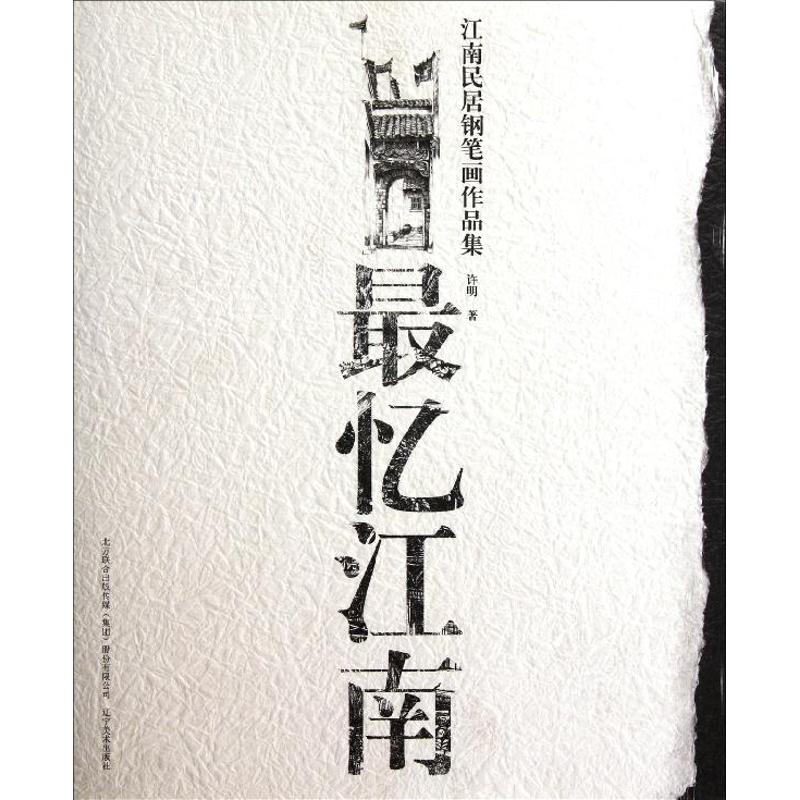 江南民居钢笔画作品集
许明 著
最忆江南
北方联合出版传媒（集团）股份有限公司 辽宁美术出版社